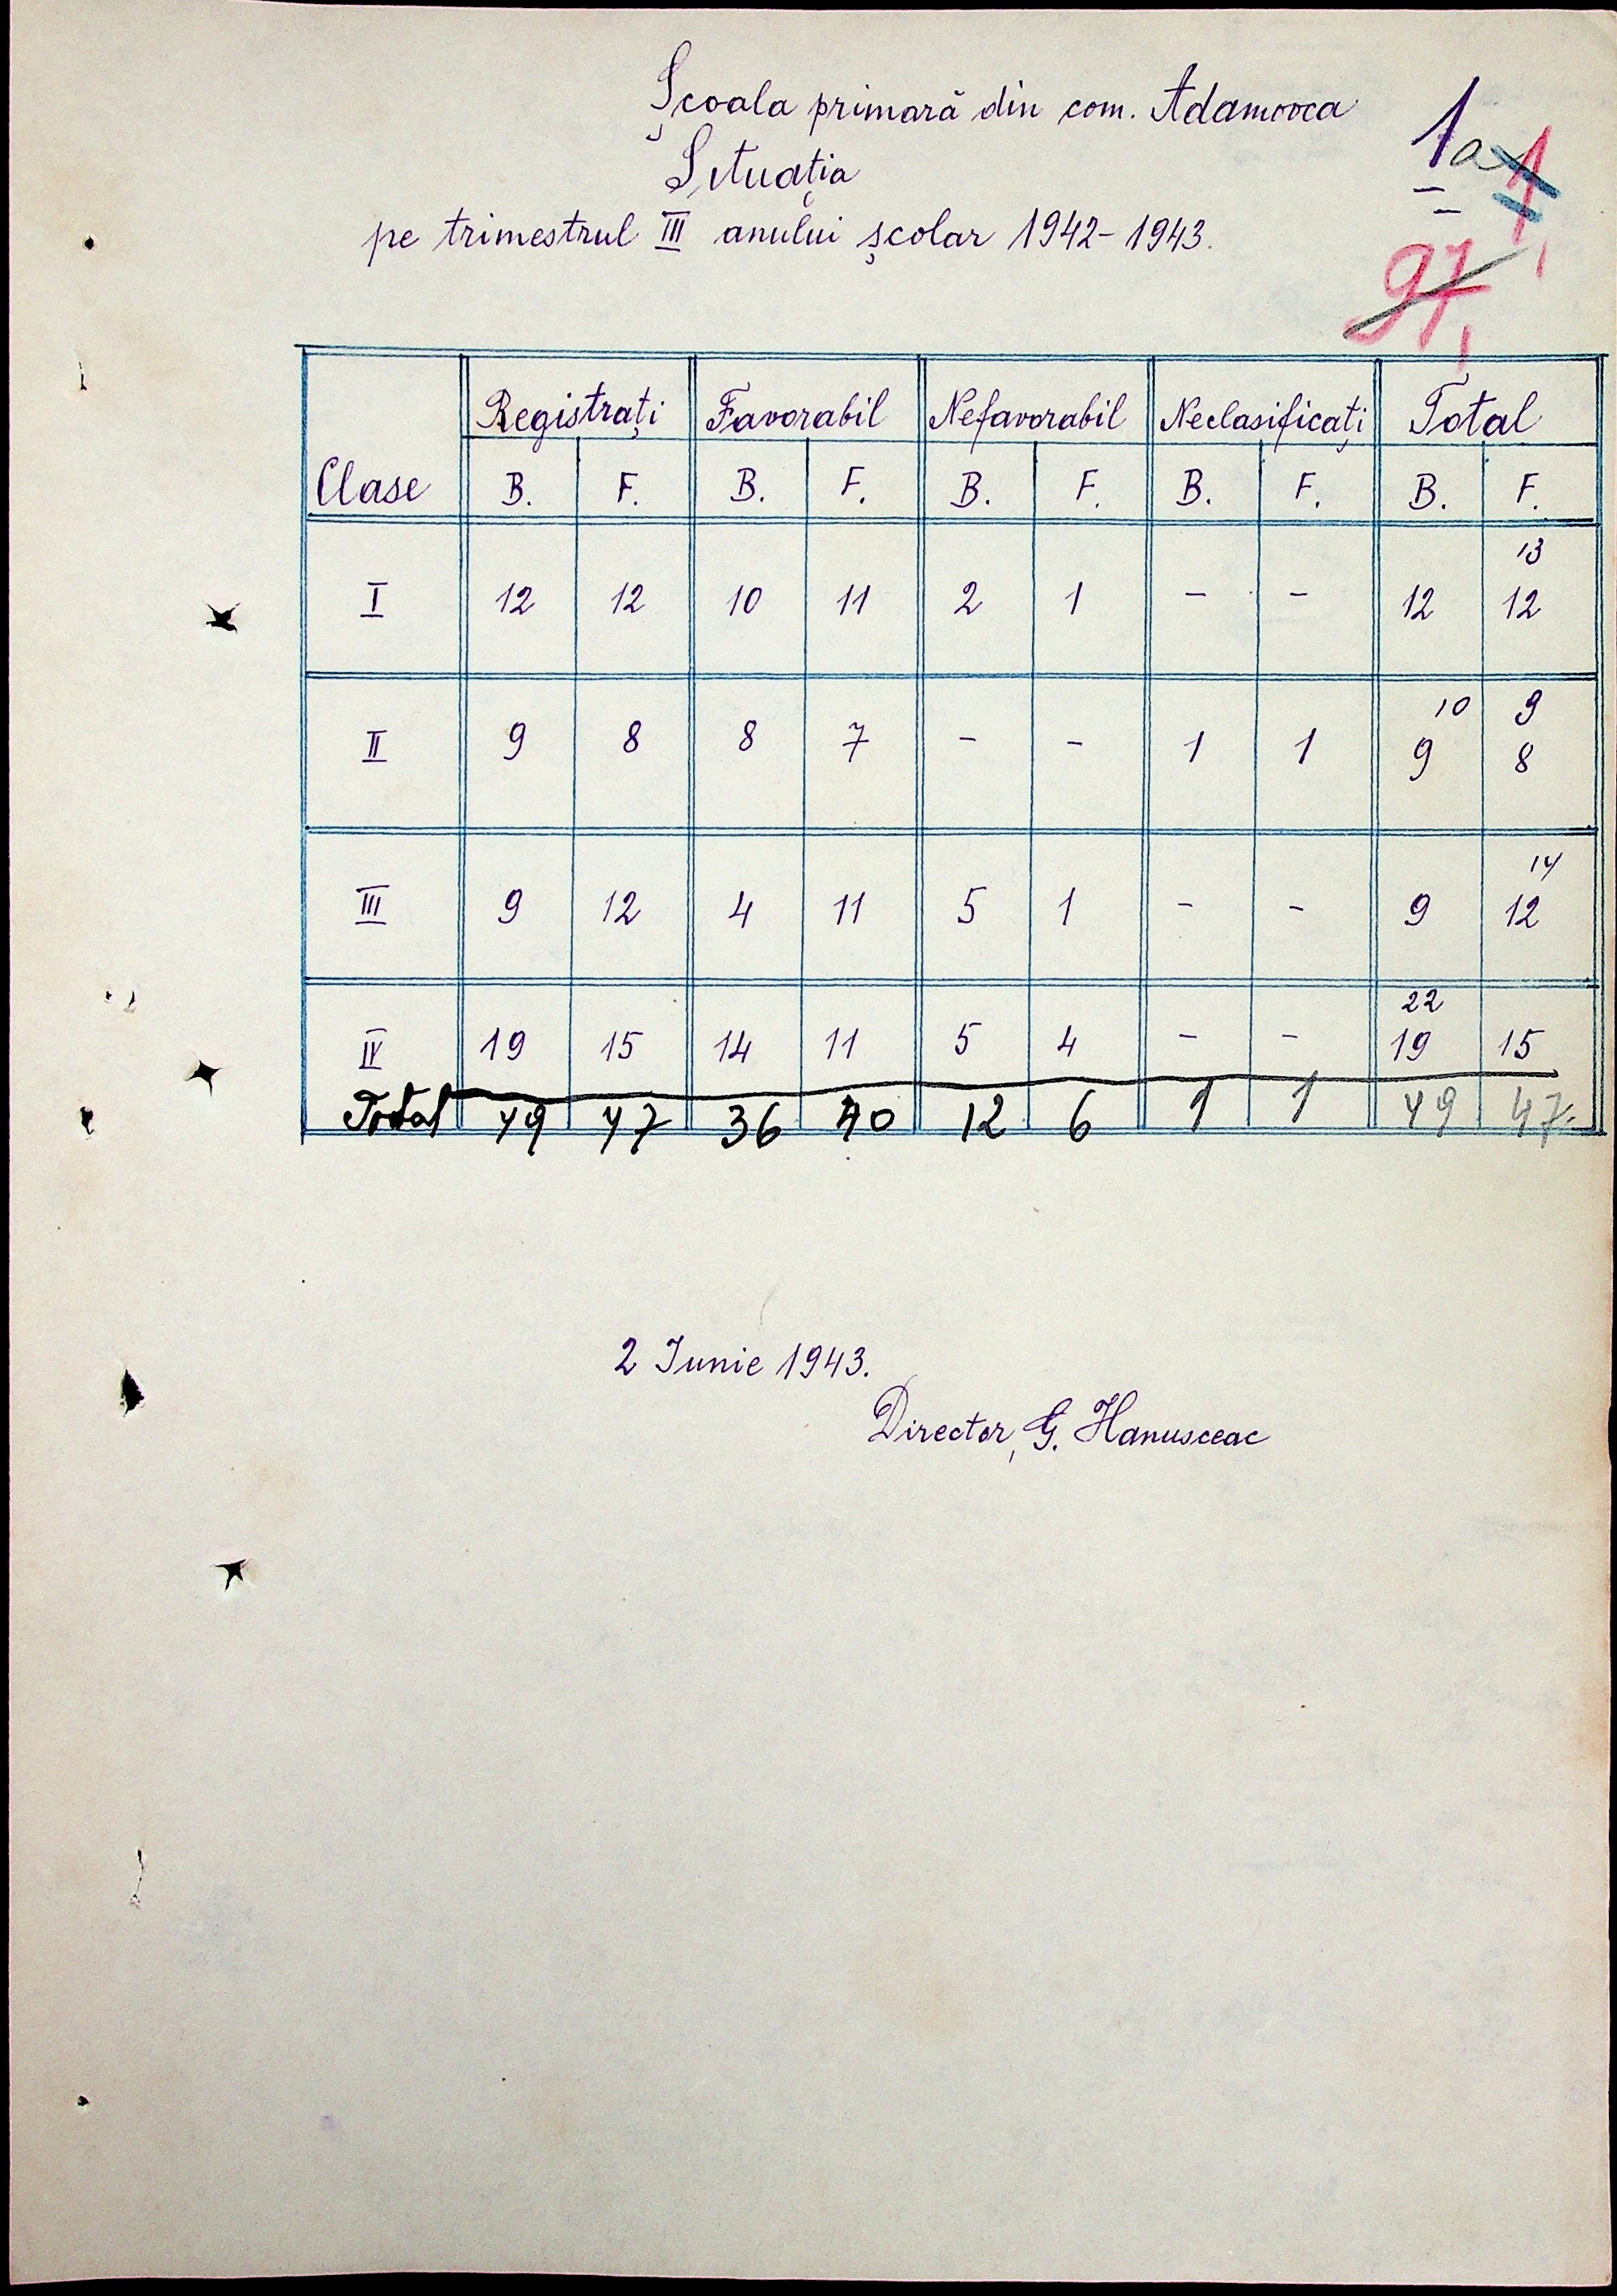 Școala primară din com. Adamovca
Situația
pe trimestrul III anului școlar 1942-1943.
1a 1
97
Clase Registrați Favorabil Nefavorabil Neclasificați Total
B. F. B. F. B. F. B. F. B. F.
13
I 12 12 10 11 2 1 - - 12 12
10 9
II 9 8 8 7 - - 1 1 9 8
14
III 9 12 4 11 5 1 - - 9 12
22
IV 19 15 14 11 5 4 - - 19 15
Total 49 47 36 40 12 6 1 1 49 47.
2 Iunie 1943.
Director, G. Hanusceac